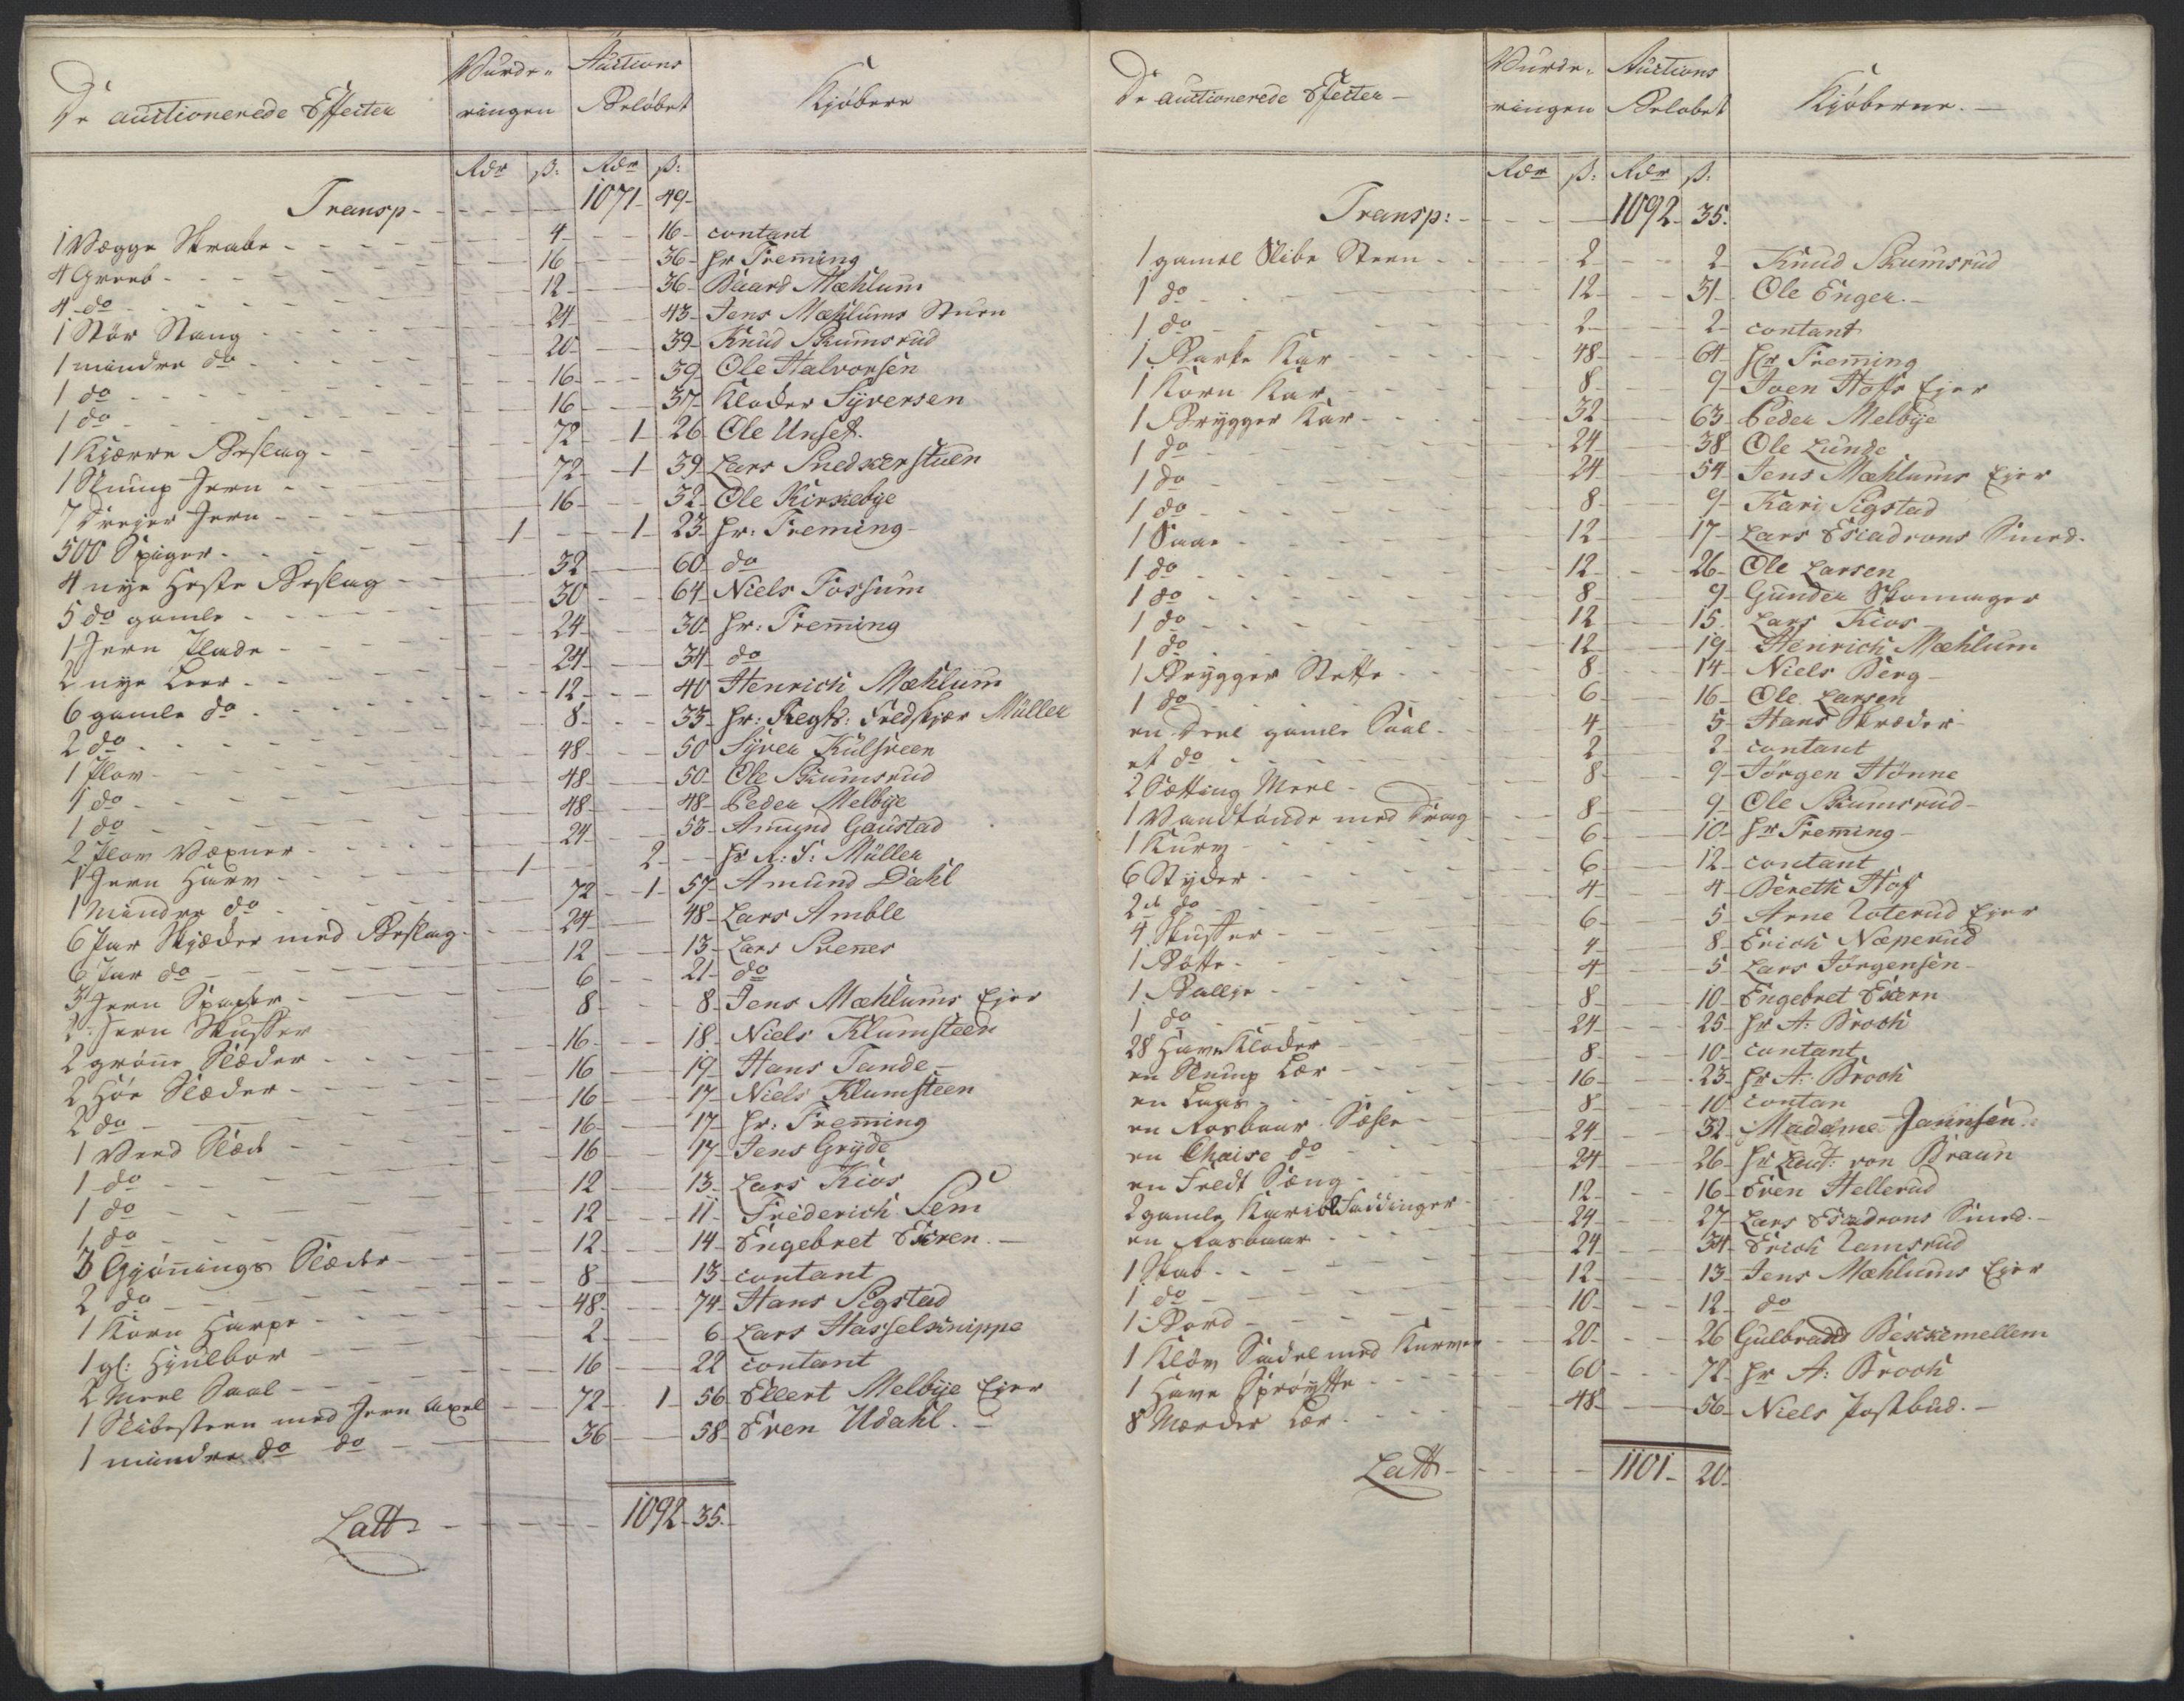 De auctionerede Effecter | Vurde- ringen | Auctions Beløbet | Kjøbere
Rdr ß: Rdr ß:
Transp - 1071 - 49 -
1 Vægge Skrabe - 4 - 16 - contant
4 Greeb - 16 - 36 - Hr Freming
4 do - 12 - 36 - Baard Mæhlum
1 Stör Stang - 24 - 43 - Jens Mæhlums Stuen
1 mindre do - 20 - 39 - Knud Skumsrud
1 do - 16 - 39 - Ole Halvorsen
1 do - 16 - 37 - Klader Syversen
1 Kjærre Beslag - 72 - 1 - 26 - Ole Unset.
1 Stump Jern - 72 - 1 - 39 - Lars Snedkerstuen
7 Dreyer Jern - 16 - 32 - Ole Kirkebye
500 Spiger - 1 - 1 - 23 - Hr: Freming
4 nye Heste Beslag - 32 - 60 - do
5 do gamle - 30 - 64 - Niels Fossum
1 Jern Plade - 24 - 30 - Hr: Freming
2 nye Leer - 24 - 34 - do
6 gamle do - 12 - 40 - Henrich Mæhlum
2 do - 8 - 33 - Hr: Regts: Feldskjær Müller
1 Plov - 48 - 50 - Syver Kulsveen
1 do - 48 - 50 - Ole Skumsrud
1 do - 48 - 48 - Peder Melbye
2 Plov - 24 - 53 - Amund Gaustad
1 Jern Harv - 1 - 2 - Hr A: S: Müller
1 Mindre do - 72 - 1 - 57 - Amund Dahl
6 Par Skjæker med Beslag - 24 - 48 - Lars Amble
6 Par do - 12 - 13 - Lars Svenes
3 Jern - 6 - 21 - do
2 Jern Skuffer - 8 - 8 - Jens Mæhlums Ejer
2 grönne Slæder - 16 - 18 - Niels Klumsteen
2 Höe Slæder - 16 - 19 - Hans Tande
2 do - 16 - 17 - Niels Klumsteen
1 Veed Slæde - 16 - 17 - Hr: Freming
1 do - 16 - 17 - Jens Gryde
1 do - 12 - 13 - Lars Kios
1 do - 12 - 11 - Frederich Sem
3 Gjönnings Slæder - 12 - 14 - Engebret Ekren. -
2 do - 8 - 13 - contant
1 Korn Harpe - 48 - 74 - Hans Sigstad
1 gl: Hjulbör - 2 - 6 - Lars Hasselknippe
2 Meel Saal - 16 - 22 - contant
1 Slibesteen med Jern Axel - 72 - 1 - 56 - Ellert Melbye Ejer
1 mindre do do - 36 - 58 - Even Udahl. -
Latt - 1092 - 35. -
De auctionerede Effecter - | Vurde- ringen | Auctions Beløbet | Kjøberne. -
Rdr ß: Rdr ß:
Transp: - 1092 - 35.
1 gamel Slibe Steen - 2 - 2 - Knud Skumsrud
1 do - 12 - 31 - Ole Enger. -
1 do - 2 - 2 - contant
1 Barke Kar - 48 - 64 - Hr Freming
1 Korn Kar - 8 - 9 - Joen Hofs Ejer
1 Brygger Kar - 32 - 63 - Peder Melbye
1 do - 24 - 38 - Ole Lunde
1 do - 24 - 54 - Jens Mæhlums Ejer
1 do - 8 - 9 - Kari Sigstad
1 Saae - 12 - 17 - Lars Esaadrons Smed.
1 do - 12 - 26 - Ole Larsen
1 do - 8 - 9 - Gunder Skomager
1 do - 12 - 15 - Lars Kios
1 do - 12 - 19 - Henrich Mæhlum
1 Brygger Bötte - 8 - 14 - Niels Berg -
1 do - 6 - 16 - Ole Larsen
en Deel gamle Saal - 4 - 5 - Hans Skræder
et do - 2 - 2 - contant
2 Sætting Meel - 8 - 9 - Jörgen Hönne
1 Vandtönde med Drag - 8 - 9 - Ole Skumsrud -
1 Kurv - 6 - 10 - Hr Freming -
6 Bytter - 6 - 12 - contant
2 do - 4 - 4 - Bereth Hof
4 Skuffer - 6 - 5 - Arne Loterud Ejer
1 Bötte - 4 - 8 - Erich Næperud
1 Ballje - 4 - 5 - Lars Jörgensen -
1 do - 8 - 10 - Engebret Ekern
28 Have Klader - 24 - 25 - Hr A: Broch
en Stump Lær - 8 - 10 - contant
en Laas - 16 - 23 - Hr A: Broch
en Rosbaar Seele - 8 - 10 - contan
en Chaise do - 24 - 32 - Madame Jannsen.
en Feldt Seng - 24 - 26 - Hr Lieut: von Braun
2 gamle Kariol - 12 - 16 - Even Hellerud
en Rosbaar - 24 - 27 - Lars Esaadrons Smed. -
1 Skab - 24 - 34 - Erich Lamsrud
1 do - 12 - 13 - Jens Mæhlums Ejer
1 Bord - 10 - 12 - do
1 Klöv Sadel med Kurver - 20 - 26 - Gulbrand Bekkemellem
1 Have Spröyte - 60 - 72 - Hr A: Broch
8 Lær - 48 - 56 - Niels Postbud. -
Latt - 1101 - 20 -